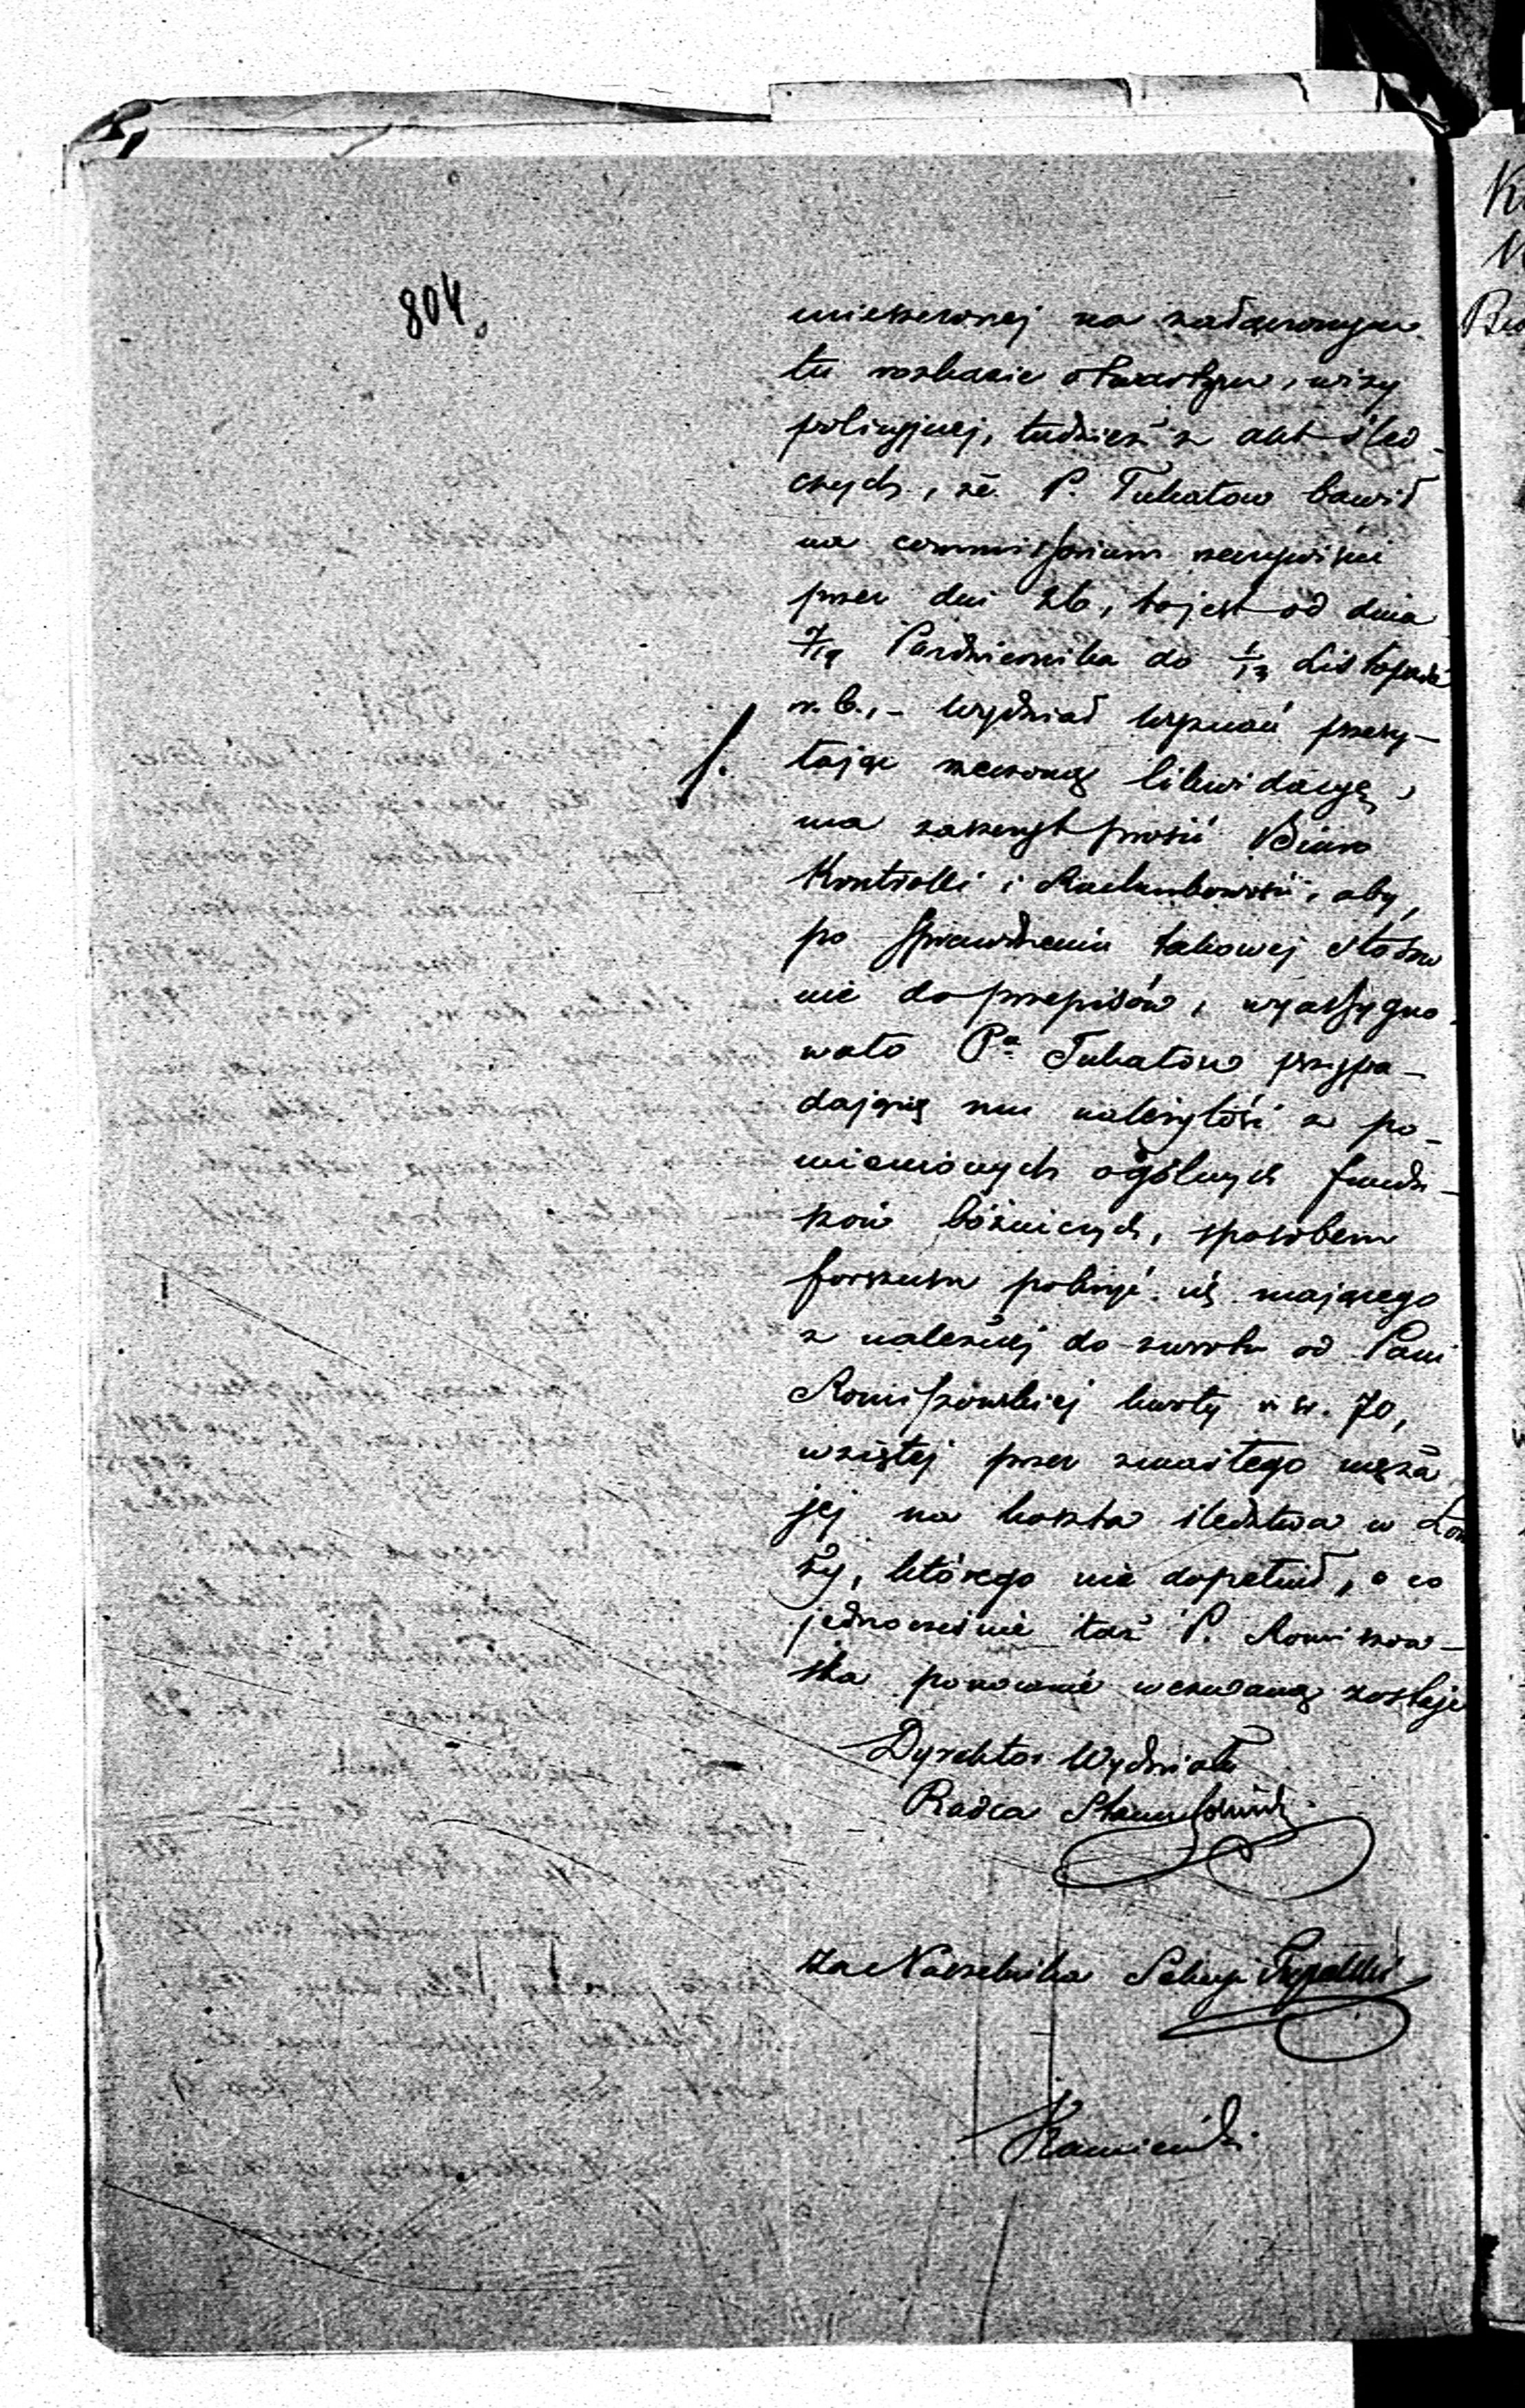 804.
mieszczonej na załączonym
tu rozkazie otwartym, wizy
policyjnej, tudzież z akt śled-
czych, że P. Tukałow bawił
na commissorium rzeczywiście
przez dni 26, to jest od dnia
7/19 Października do 1/13 Listopada
r. b., - Wydział Wyznań przesy-
łając rzeczoną likwidacyę,
ma zaszczyt prosić Biuro
Kontrolli i Rachunkowości, aby,
po sprawdzeniu takowej stosow
nie do przepisów, wyassygno-
wało Pu Tukałow przypa-
dającą mu należytość z po-
mienionych ogólnych fundu-
szów bóżniczych, sposobem
forszusu pokryć się mającego
z należnej do zwrotu od Pani
Romiszowskiej kwoty rsr. 70,
wziętej przez zmarłego męża
jej na koszta śledztwa w Łom
ży, którego nie dopełnił, o co
jednocześnie taż P. Romiszow-
ska ponownie wezwaną zostaje
Dyrektor Wydziału
Radca Stanu
Za Naczelnika Sekcyi
Kamieński